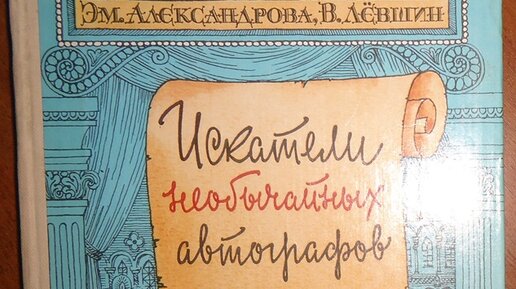 ЭМ. АЛЕКСАНДРОВА, В. ЛЁВШИН
Искатели
необычайных
автографов